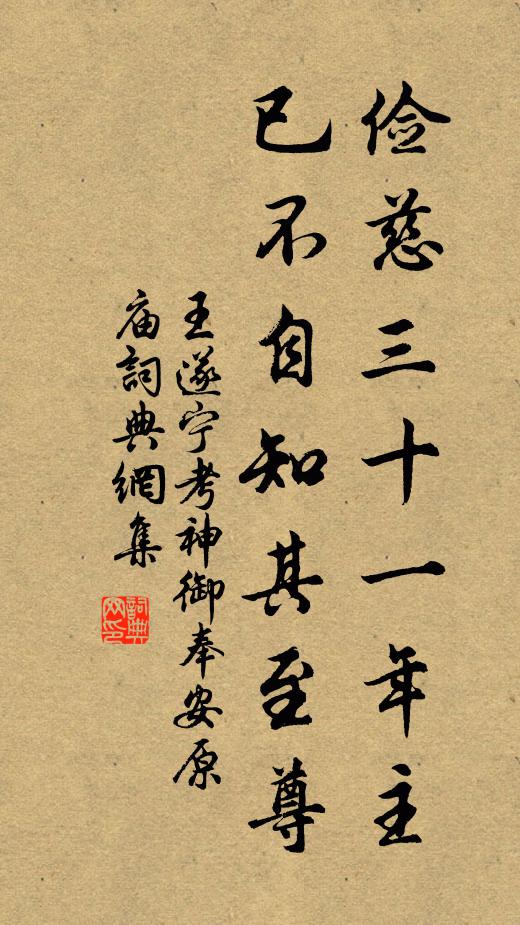 俭慈三十一年主
已不自知其至尊
王遂宁考神御奉安原
庙詞典網集
詞典网印